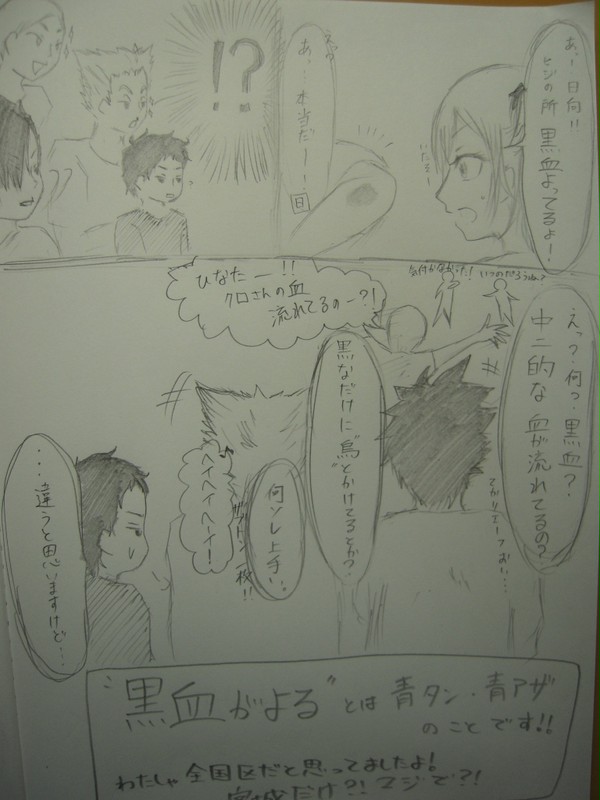 あー日向!!
ヒジの所
黒血よってるよー!
いたそー
えっ
あ…本当だーー!
!?
えっ?何っ黒血?
中二的な
血が流れてるの?
気付かなかった!
いつのだろうね?
ひなたー!!
クロさんの血
流れてるのー?!
黒なだけに
“烏”とかけてるとか?
てかリエーフおい…
何ソレ上手い。
ザブトン一枚!!
ヘイヘイヘイ!
・・違うと思いますけど…
“黒血がよる”とは青タン・青アザ
のことです!!
わたしゃ全国区だと思ってましたよ!
宮城だけ?!マジで?!